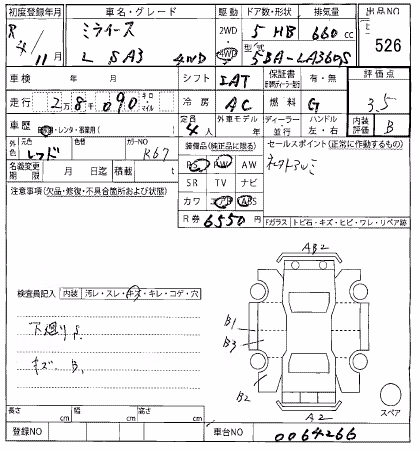 初度登録年月 車名・グレード 駆動 ドア数・形状 排気量 出品NO
R 4/11月 ミライース 2WD 5 HB 660cc 526
L SA3 4WD 4WD 型式 5BA-LA360S
車検 年 月 シフト IAT 保証書 有・無 評価点
走行 2万8千090 キロ・マイル 冷房 AC 燃料 G 3.5
車歴 自家・レンタ・事業用( ) 定員 4人 外車モデル 年 ディーラー・並行 ハンドル 左・右 内装評価 B
外色 元色 レッド 色替 カラーNO R67 装備品(純正品に限る) セールスポイント(正常に作動するもの)
名義変更期限 月 日迄 積載 t PS PW AW
注意事項(欠品・修復・不具合箇所および状態) SR TV ナビ
カワ エアB ABS
R券 6550円 Fガラス トビ石・キズ・ヒビ・ワレ・リペア跡
AB2
検査員記入 内装 汚レ・スレ・キズ・キレ・コゲ・穴
下廻りS.
キズ B1
B1
B3
B2
A2
スペア
長さ cm 幅 cm 高さ cm
登録NO 車台NO 0064266